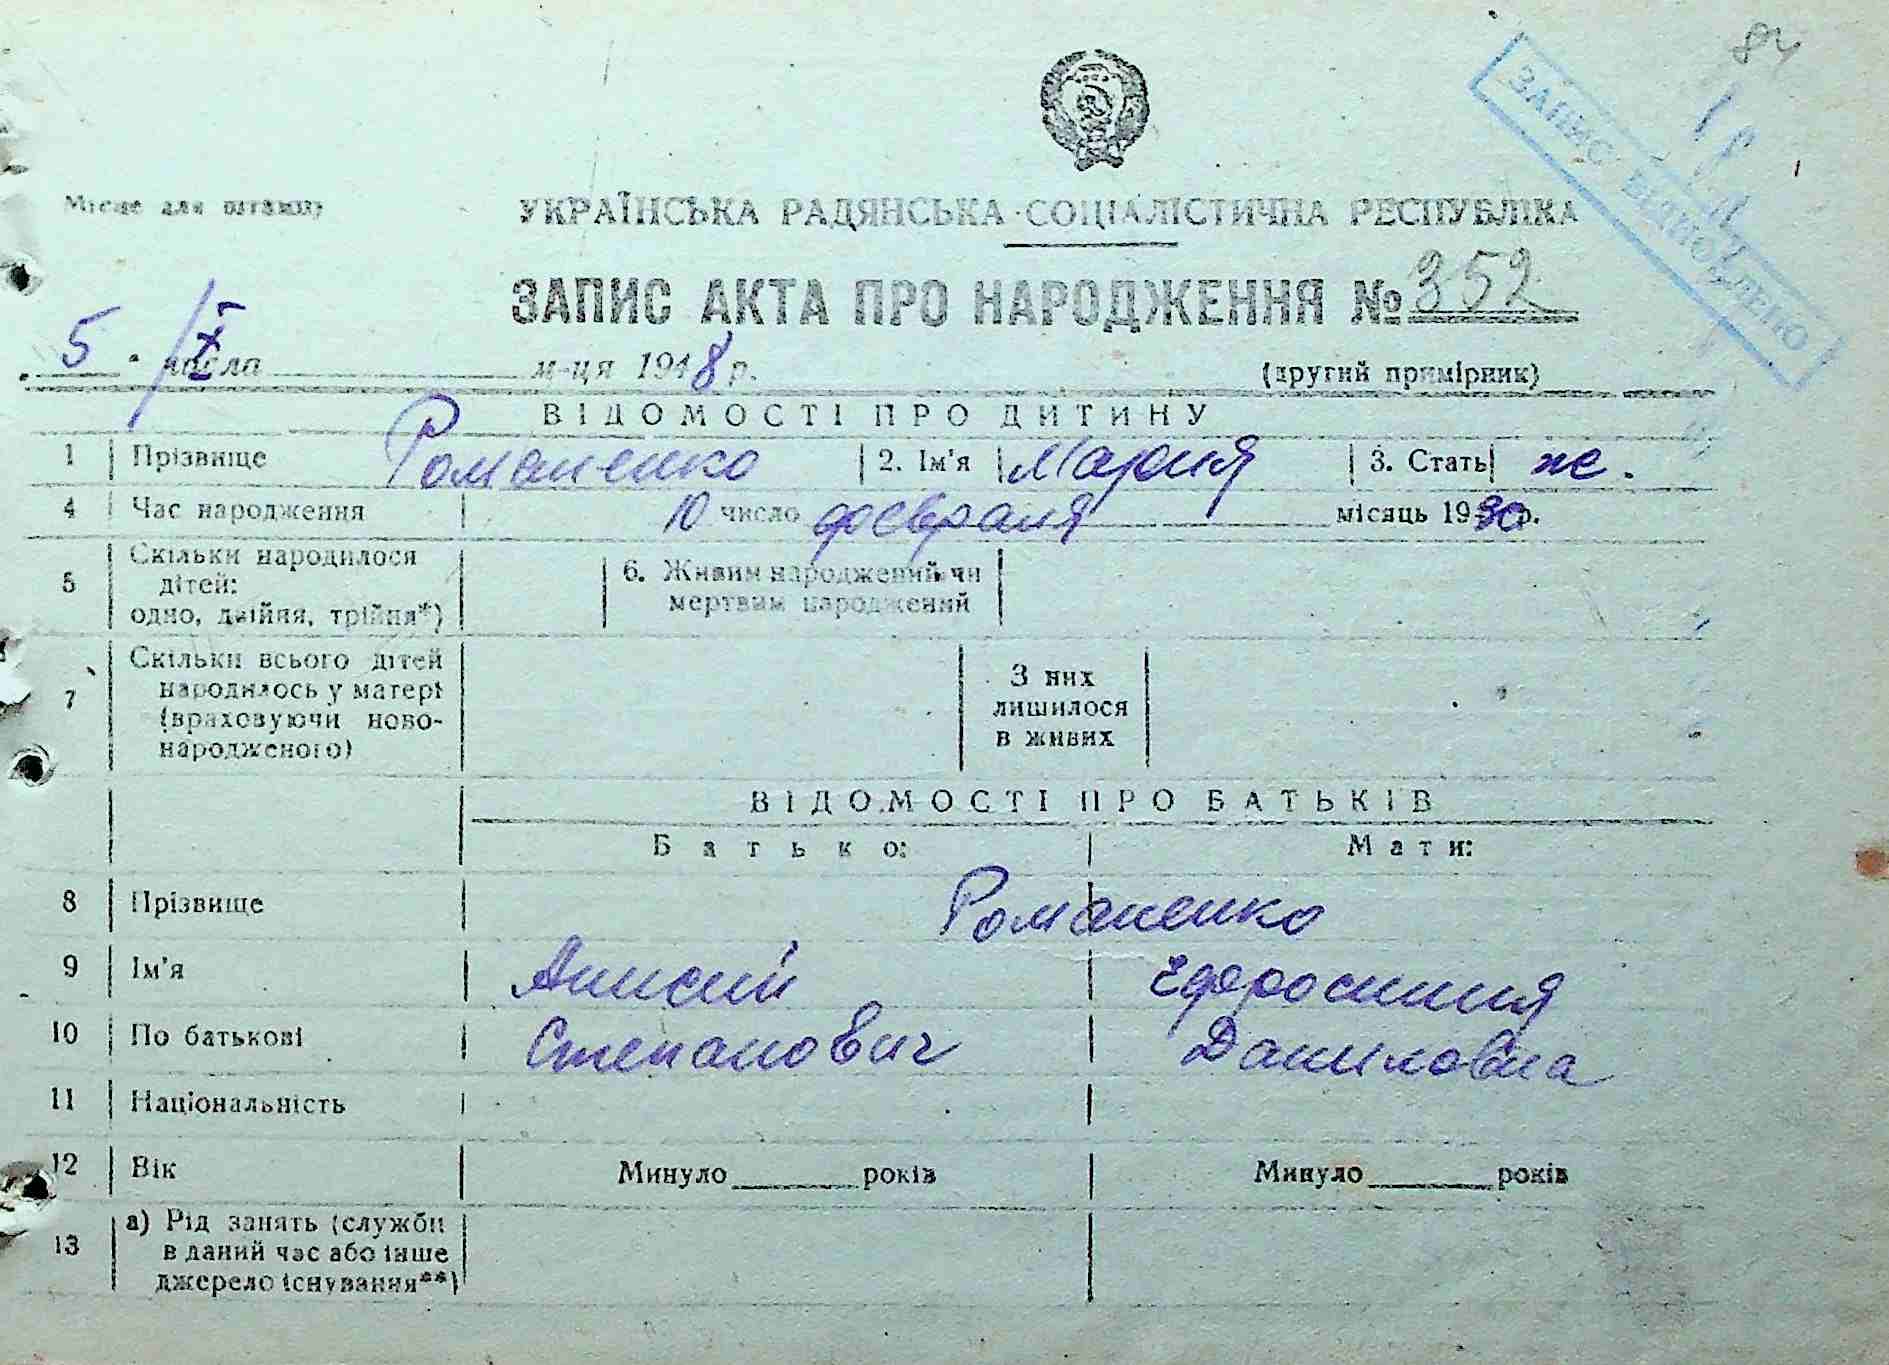 84
ЗАПИС ВІДНОВЛЕНО
Місце для штампу
УКРАЇНСЬКА РАДЯНСЬКА СОЦІАЛІСТИЧНА РЕСПУБЛІКА
ЗАПИС АКТА ПРО НАРОДЖЕННЯ № 352
5 / числа м-ця 1948 р. (другий примірник)
ВІДОМОСТІ ПРО ДИТИНУ
1 Прізвище Романенко 2. Ім'я Мария 3. Стать ж.
4 Час народження 10 число февраля місяць 1930 р.
5 Скільки народилося дітей: одно, двійня, трійня*) 6. Живим народжений чи мертвим народжений
7 Скільки всього дітей народилось у матері (враховуючи ново-народженого) З них лишилося в живих
ВІДОМОСТІ ПРО БАТЬКІВ
Батько: Мати:
8 Прізвище Романенко
9 Ім'я Анисий Ефросиния
10 По батькові Степанович Даниловна
11 Національність
12 Вік Минуло років Минуло років
13 а) Рід занять (служби в даний час або інше джерело існування**)